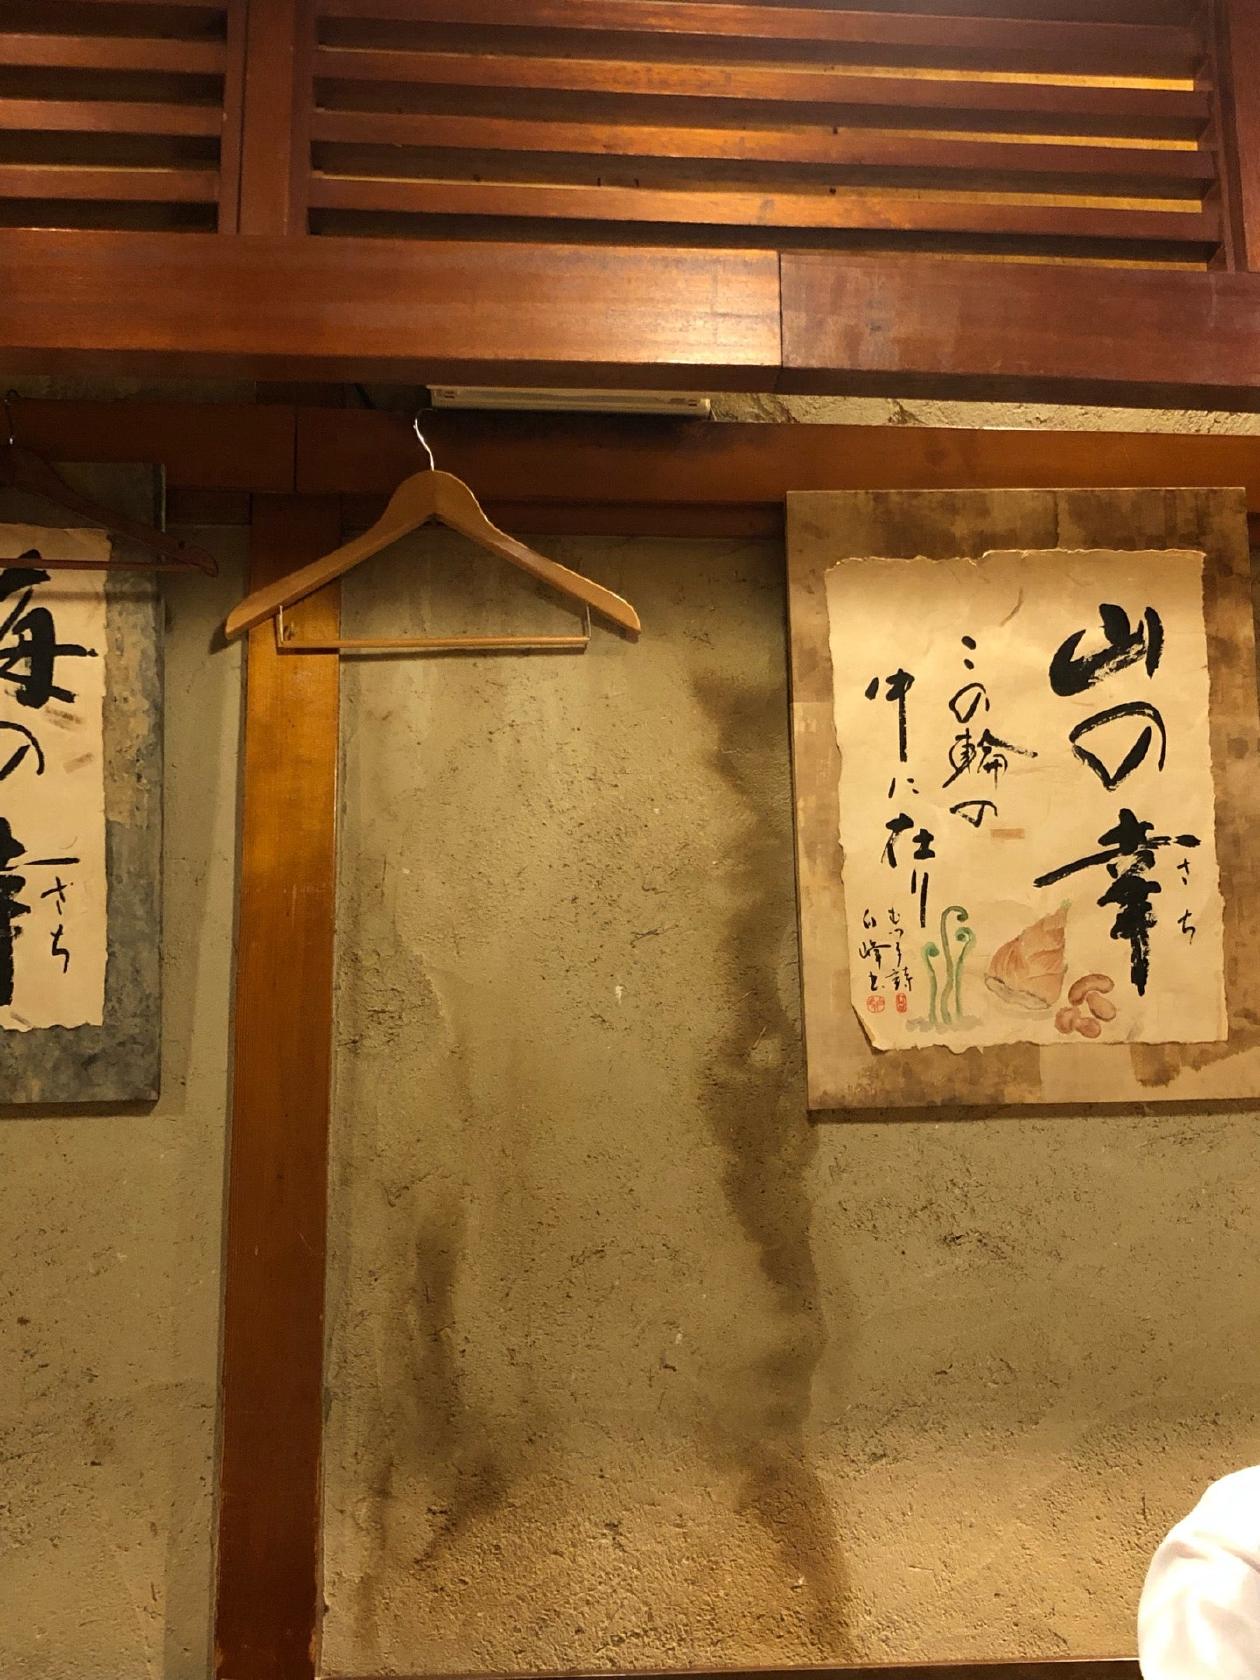 山の幸
さち
この輪の
中に在り
むつみ詩
白峰書
海の幸
さち